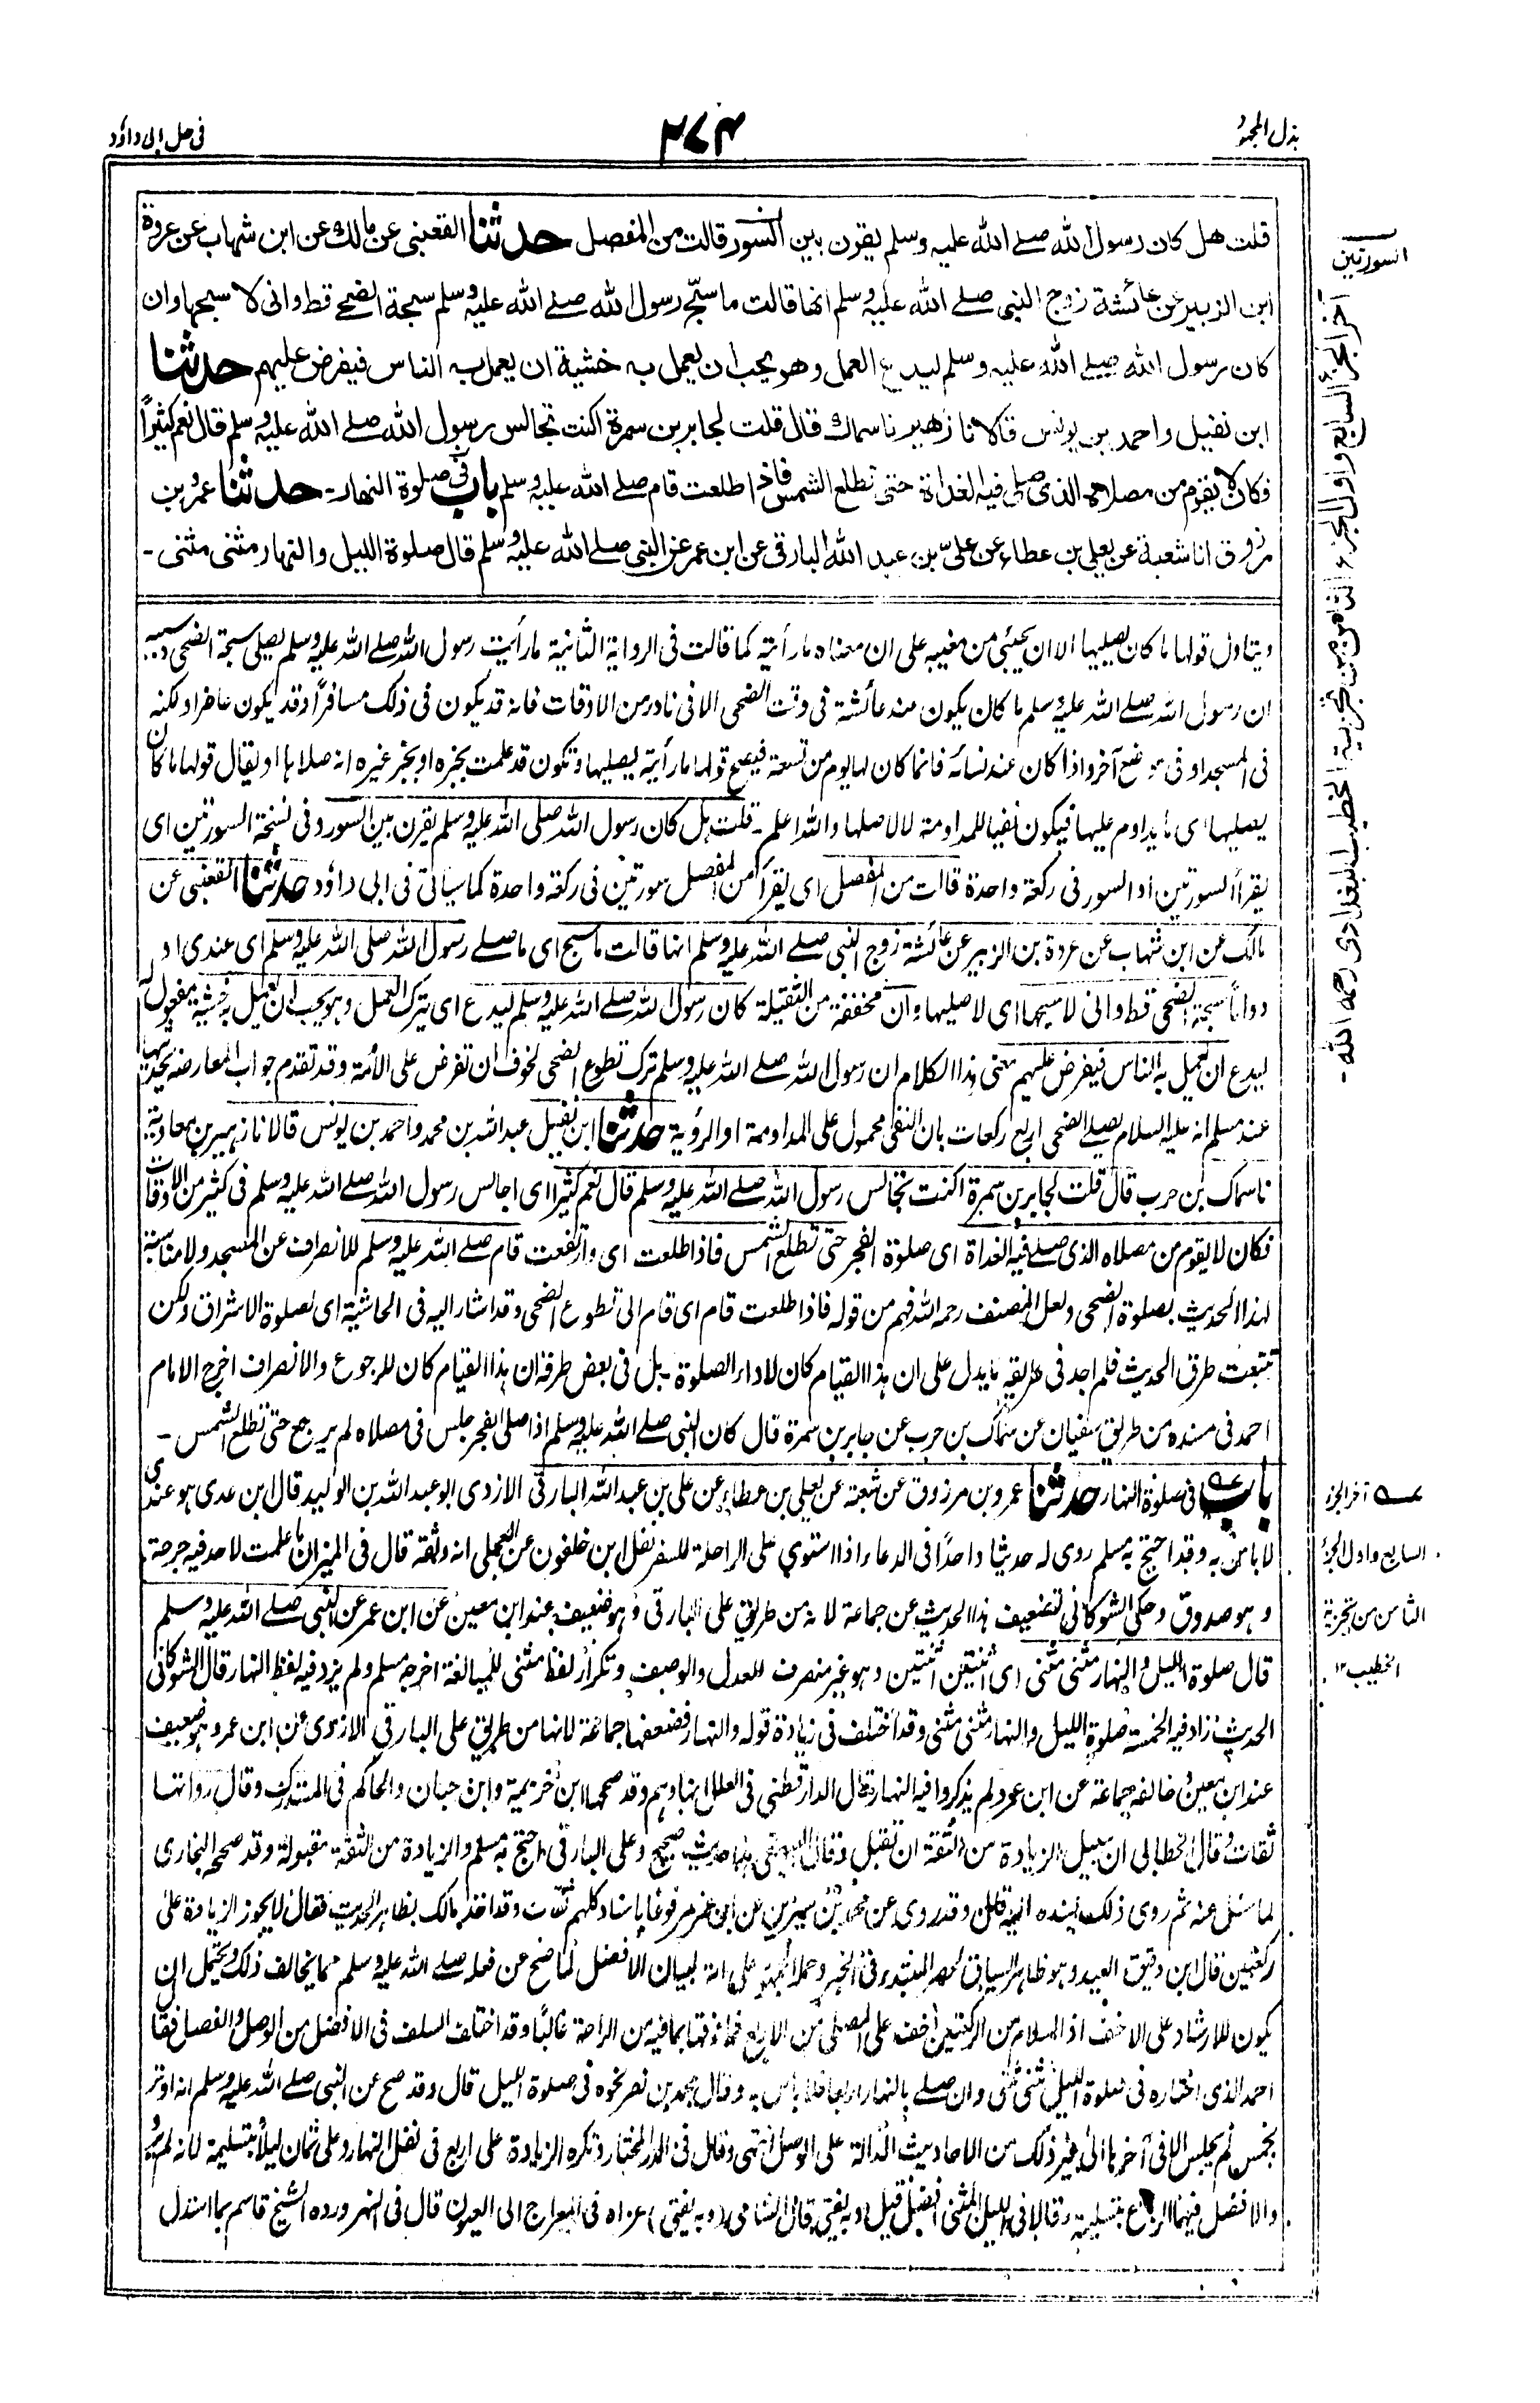 بذل المجهود
٢٧٤
فى حل ابى داؤد
قلت هل كان رسول الله صلے الله عليه وسلم يقرن بين السور قالت من المفصل حدثنا القعنبى عن مالك عن ابن شهاب عن عروة
ابن الزبير عن عائشة زوج النبى صلے الله عليه وسلم انها قالت ما سبّح رسول الله صلے الله عليه وسلم سبحة الضحے قط وانى لا سبحها وان
كان رسول الله صلے الله عليه وسلم ليدع العمل وهو يحب ان يعمل به خشية ان يعمل به الناس فيفرض عليهم حدثنا
ابن نفيل واحمد بن يونس قالا نا زهير نا سماك قال قلت لجابر بن سمرة اكنت تجالس رسول الله صلے الله عليه وسلم قال نعم كثيراً
فكان لا يقوم من مصلاه الذى صلى فيه الغداة حتى تطلع الشمس فاذا طلعت قام صلے الله عليه وسلم باب فى صلوة النهار- حدثنا عمرو بن
مرزوق انا شعبة عن يعلى بن عطاء عن على بن عبد الله البارقى عن ابن عمر عن النبى صلے الله عليه وسلم قال صلوة الليل والنهار مثنى مثنى -
ويتاول قولها ما كان يصليها الا ان يجيئ من مغيبه على ان معناه ما رأيته كما قالت فى الرواية الثانية ما رأيت رسول الله صلے الله عليه وسلم يصلى سبحة الضحى وسببه
ان رسول الله صلے الله عليه وسلم ما كان يكون عند عائشة فى وقت الضحى الا فى نادر من الاوقات فانه قد يكون فى ذلك مسافراً وقد يكون حاضرا ولكنه
فى المسجد او فى موضع آخر واذا كان عند نسائه فانما كان لها يوم من تسعة فيصح قولها ما رأيته يصليها وتكون قد علمت بخبره او بخبر غيره انه صلاها او يقال قولها ما كان
يصليها اى ما يداوم عليها فيكون نفيا للمداومة لا لاصلها والله اعلم - قلت هل كان رسول الله صلى الله عليه وسلم يقرن بين السور وفى نسخة السورتين اى
يقرأ السورتين او السور فى ركعة واحدة قالت من المفصل اى يقرأ من المفصل سورتين فى ركعة واحدة كما سياتى فى ابى داؤد حدثنا القعنبى عن
مالك عن ابن شهاب عن عروة بن الزبير عن عائشة زوج النبى صلے الله عليه وسلم انها قالت ما سبح اى ما صلے رسول الله صلى الله عليه وسلم اى عندى او
دواماً سبحة الضحى قط وانى لاسبحها اى لاصليها وان مخففة من الثقيلة كان رسول الله صلے الله عليه وسلم ليدع اى يترك العمل وهو يحب ان يعمل به خشية مفعول له
ليدع ان يعمل به الناس فيفرض عليهم معنى هذا الكلام ان رسول الله صلے الله عليه وسلم ترك تطوع الضحى لخوف ان تفرض على الأمة وقد تقدم جواب المعارضة بحديثها
عند مسلم انه عليه السلام يصلے الضحى اربع ركعات بان النفى محمول على المداومة او الرؤية حدثنا ابن نفيل عبد الله بن محمد واحمد بن يونس قالا نا زهير بن معاوية
نا سماك بن حرب قال قلت لجابر بن سمرة اكنت تجالس رسول الله صلے الله عليه وسلم قال نعم كثيرا اى اجالس رسول الله صلے الله عليه وسلم فى كثير من الاوقات
فكان لا يقوم من مصلاه الذى صلے فيه الغداة اى صلوة الفجر حتى تطلع الشمس فاذا طلعت اى وارتفعت قام صلے الله عليه وسلم للانصراف عن المسجد ولا مناسبة
لهذا الحديث بصلوة الضحى ولعل المصنف رحمه الله فهم من قوله فاذا طلعت قام اى قام الى تطوع الضحى وقد اشار اليه فى الحاشية اى لصلوة الاشراق ولكن
تتبعت طرق الحديث فلم اجد فى طريقه ما يدل على ان هذا القيام كان لاداء الصلوة - بل فى بعض طرقه ان هذا القيام كان للرجوع والانصراف اخرج الامام
احمد فى مسنده من طريق سفيان عن سماك بن حرب عن جابر بن سمرة قال كان النبى صلے الله عليه وسلم اذا صلى الفجر جلس فى مصلاه لم يرجع حتى تطلع الشمس -
باب فى صلوة النهار حدثنا عمرو بن مرزوق عن شعبة عن يعلى بن عطاء عن على بن عبد الله البارقى الازدى ابو عبد الله بن الوليد قال ابن عدى هو عندى
لا باس به وقد احتج به مسلم روى له حديثا واحداً فى الدعاء اذا استوى على الراحلة للسفر نقل ابن خلفون عن العجلى انه وثقه قال فى الميزان ما علمت لاحد فيه جرحة
وهو صدوق وحكى الشوكانى تضعيف هذا الحديث عن جماعة لانه من طريق على البارقى وهو ضعيف عند ابن معين عن ابن عمر عن النبى صلے الله عليه وسلم
قال صلوة الليل والنهار مثنى مثنى اى اثنتين اثنتين وهو غير منصرف للعدل والوصف وتكرار لفظ مثنى للمبالغة اخرجه مسلم ولم يزد فيه لفظ النهار قال الشوكانى
الحديث زاد فيه الخمسة صلوة الليل والنهار مثنى مثنى وقد اختلف فى زيادة قوله والنهار فضعفها جماعة لانها من طريق على البارقى الازدى عن ابن عمر وهو ضعيف
عند ابن معين وخالفه جماعة عن ابن عمر ولم يذكروا فيه النهار وقال الدارقطنى فى العلل انها وهم وقد صححها ابن خزيمة وابن حبان والحاكم فى المستدرك وقال رواتها
ثقات وقال الخطابى ان سبيل الزيادة من الثقة ان تقبل وقال البيهقى هذا حديث صحيح وعلى البارقى احتج به مسلم والزيادة من الثقة مقبولة وقد صححه البخارى
لما سئل عنه ثم روى ذلك بسنده اليه قال وقد روى عن محمد بن سيرين عن ابن عمر مرفوعا باسناد كلهم ثقات وقد اخذ مالك بظاهر الحديث فقال لا يجوز الزيادة على
ركعتين قال ابن دقيق العيد وهو ظاهر السياق لحصر المبتدء فى الخبر وحمله الجمهور على انه لبيان الافضل لما صح عن فعله صلے الله عليه وسلم مما يخالف ذلك ويحتمل ان
يكون للارشاد على الاخف اذ السلام من الركعتين اخف على المصلى من الاربع فما فوقها بما فيه من الراحة غالباً وقد اختلف السلف فى الافضل من الوصل والفصل فقال
احمد الذى اختاره فى صلوة الليل مثنى مثنى وان صلے بالنهار اربعا فلا باس به وقال محمد بن نصر نحوه فى صلوة الليل قال وقد صح عن النبى صلے الله عليه وسلم انه اوتر
بخمس لم يجلس الا فى آخرها الى غير ذلك من الاحاديث الدالة على الوصل انتهى وقال فى الدر المختار وتكره الزيادة على اربع فى نفل النهار وعلى ثمان ليلاً بتسليمة لانه لم يرد
والافضل فيهما الرباع بتسليمة وقالا فى الليل المثنى افضل قيل (وبه يفتى) قال الشامى (وبه يفتى) عزاه فى المعراج الى العيون قال فى النهر ورده الشيخ قاسم بما استدل
السورتين
آخر الجزء السابع واول الجزء الثامن من تجزية الخطيب البغدادى رحمه الله -
آخر الجزء
السابع واول الجزء
الثامن من تجزية
الخطيب ١٢